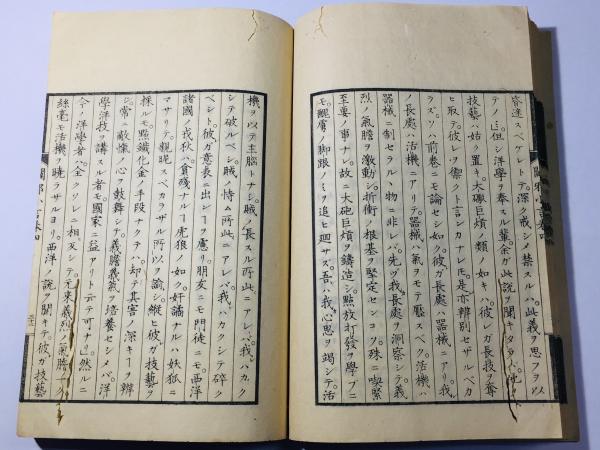 容逹スベケレトテ。深ク戒シメ禁スルハ。此義ヲ思フヨリ
テノ𠃊。但シ洋學ヲ奉スル輩。余ガ此說ヲ聞キタラバ。他ノ
技藝ハ姑ク置キ。大礟巨熕ノ類ノ如キハ。彼レガ長技ヲ奪
ヒ取テ。彼レヲ僇クト言ンカナレ𪜈。是亦辨别セザルベカ
ラズ。ソハ前卷ニモ論セシ如ク。彼ガ長處ハ器械ニアリ。我
ノ長處ハ活機ニアリテ。器械ハ氣ヲモテ壓スベク。活機ハ
器械ニ制セラルヽ物ニ非レバ。先ヅ我長處ヲ洞察シテ。義
烈ノ氣膽ヲ激動シ。折衝ノ根基ヲ堅定センコソ。殊ニ喫緊
至要ノ事ナレ。故ニ大礟巨熕ヲ鑄造シ。點放打發ヲ學ブニ
モ。醜虜ノ脚跟ノミヲ追ヒ廻サズ。吾ハ我心思ヲ竭シテ。活
闢邪小言卷四
機ヲ以テ主腦トナシ。賊ノ長スル所此ニアレバ。我ハカク
シテ破ルベシ。賊ノ恃ム所此ニアレバ。我ハカクシテ碎ク
ベシト。彼ガ意長ニ出ンヿヲ慮リ。朋友ニモ門徒ニモ。西洋
諸國ノ戎狄ハ。貪殘ナルヿ虎狼ノ如ク。奸譎ナルハ妖狐ニ
マサリテ。親昵スベカラザル所以ヲ諭シ。縱ヒ彼ガ技藝ヲ
採ルモ。點鐵化金ノ手段ナクテハ。却テ其害ノ深キヿヲ辨
ジ。常ニ敵愾ノ心ヲ鼓舞シテ。義膽義氣ヲ培養セシメバ。洋
學洋技ヲ講スル者モ。國家ニ益アリト云テ可ナリ。然ルニ
今ノ洋學者ハ。全クソレニ相反シテ。元來義烈ノ氣膽ナク。
絲毫モ活機ヲ曉ラザルヨリ。西洋ノ說ヲ聞キ。彼ガ技藝
闢邪小言卷四